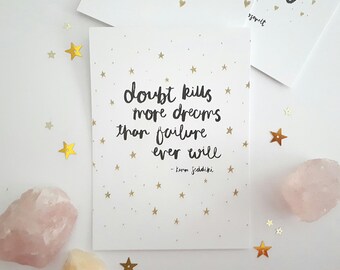 doubt kills
more dreams
than failure
ever will